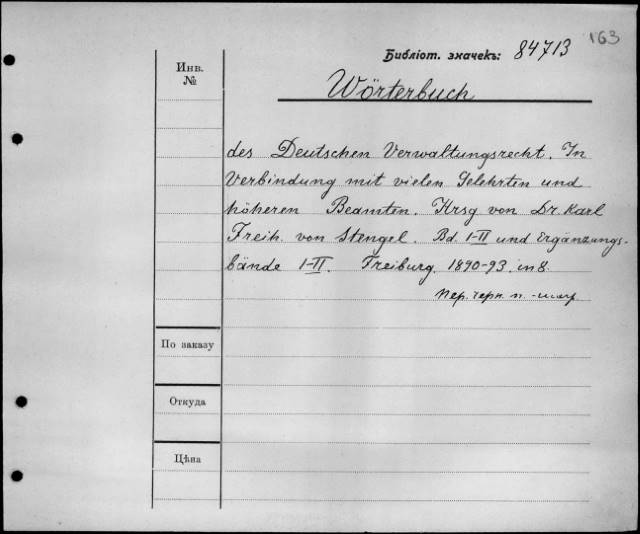 163
Библіот. значекъ: 84713
Инв.
№
Wörterbuch
des Deutschen Verwaltungsrecht. In
Verbindung mit vielen Gelehrten und
höheren Beamten. Hrsg von Dr. Karl
Freih. von Stengel. Bd. I-II und Ergänzungs-
bände I-II. Freiburg. 1890-93. in 8.
пер. черн. п.
По заказу
Откуда
Цѣна